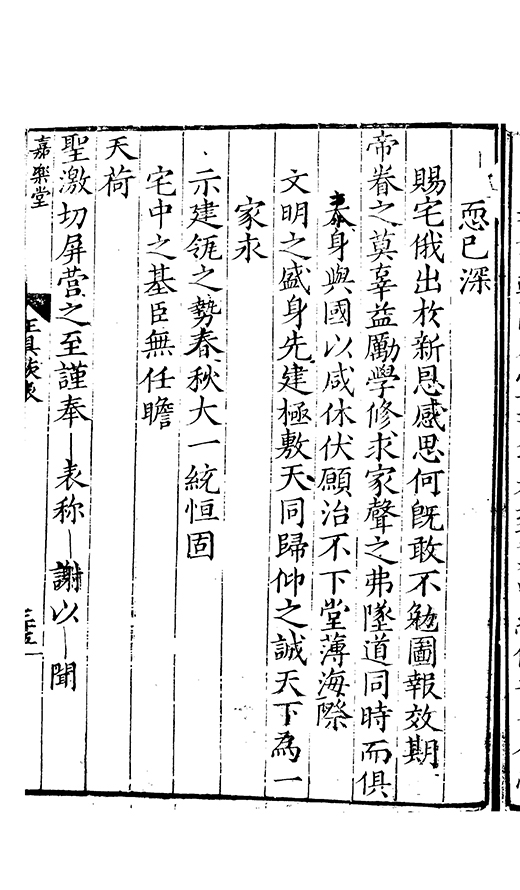 恧已深
賜宅俄出於新恩感思何旣敢不勉圖報效期
帝眷之莫辜益勵學修求家聲之弗墜道同時而俱
泰身與國以咸休伏願治不下堂薄海際
文明之盛身先建極敷天同歸仰之誠天下爲一
家永
示建瓴之勢春秋大一統恒固
宅中之基臣無任瞻
天荷
聖激切屏營之至謹奉｜表称｜謝以｜聞
嘉樂堂